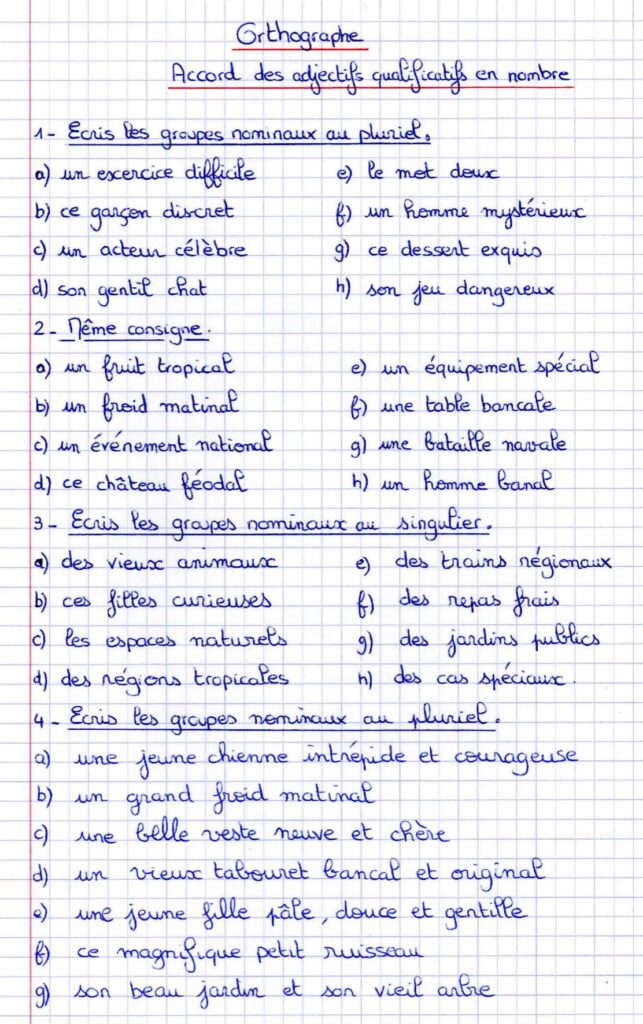 Orthographe
Accord des adjectifs qualificatifs en nombre
1- Ecris les groupes nominaux au pluriel.
a) un exercice difficile
b) ce garçon discret
c) un acteur célèbre
d) son gentil chat
e) le mot doux
f) un homme mystérieux
g) ce dessert exquis
h) son jeu dangereux
2- Même consigne.
a) un fruit tropical
b) un froid matinal
c) un événement national
d) ce château féodal
e) un équipement spécial
f) une table bancale
g) une bataille navale
h) un homme banal
3- Ecris les groupes nominaux au singulier.
a) des vieux animaux
b) ces filles curieuses
c) les espaces naturels
d) des régions tropicales
e) des trains régionaux
f) des repas frais
g) des jardins publics
h) des cas spéciaux.
4- Ecris les groupes nominaux au pluriel.
a) une jeune chienne intrépide et courageuse
b) un grand froid matinal
c) une belle veste neuve et chère
d) un vieux tabouret bancal et original
e) une jeune fille pâle, douce et gentille
f) ce magnifique petit ruisseau
g) son beau jardin et son vieil arbre